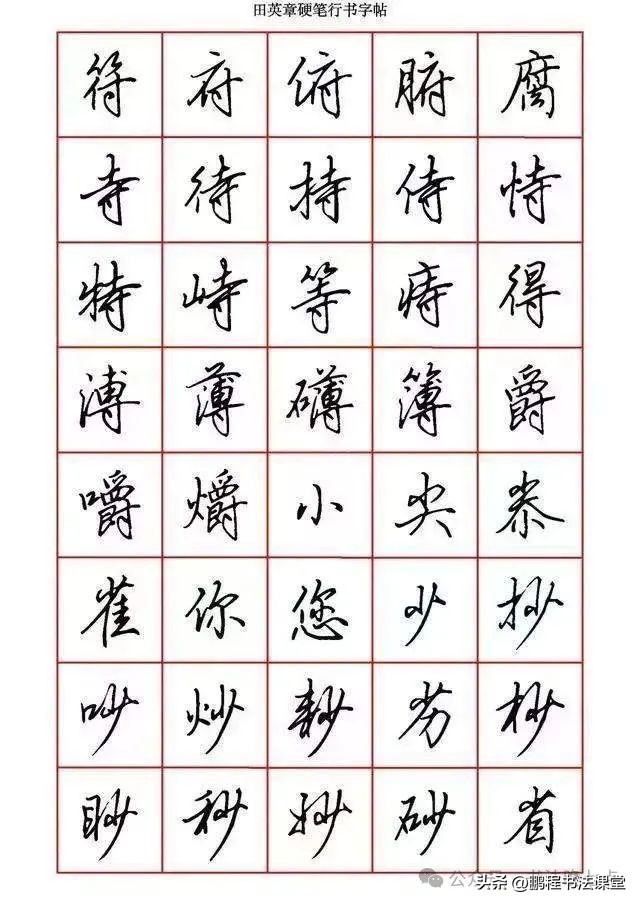 田英章硬笔行书字帖
符府俯腑腐
寺待持侍恃
特峙等痔得
溥薄礴簿爵
嚼爝小尖尜
雀你您少抄
吵炒耖劣杪
眇秒妙砂省
公众号
头条@鹏程书法课堂